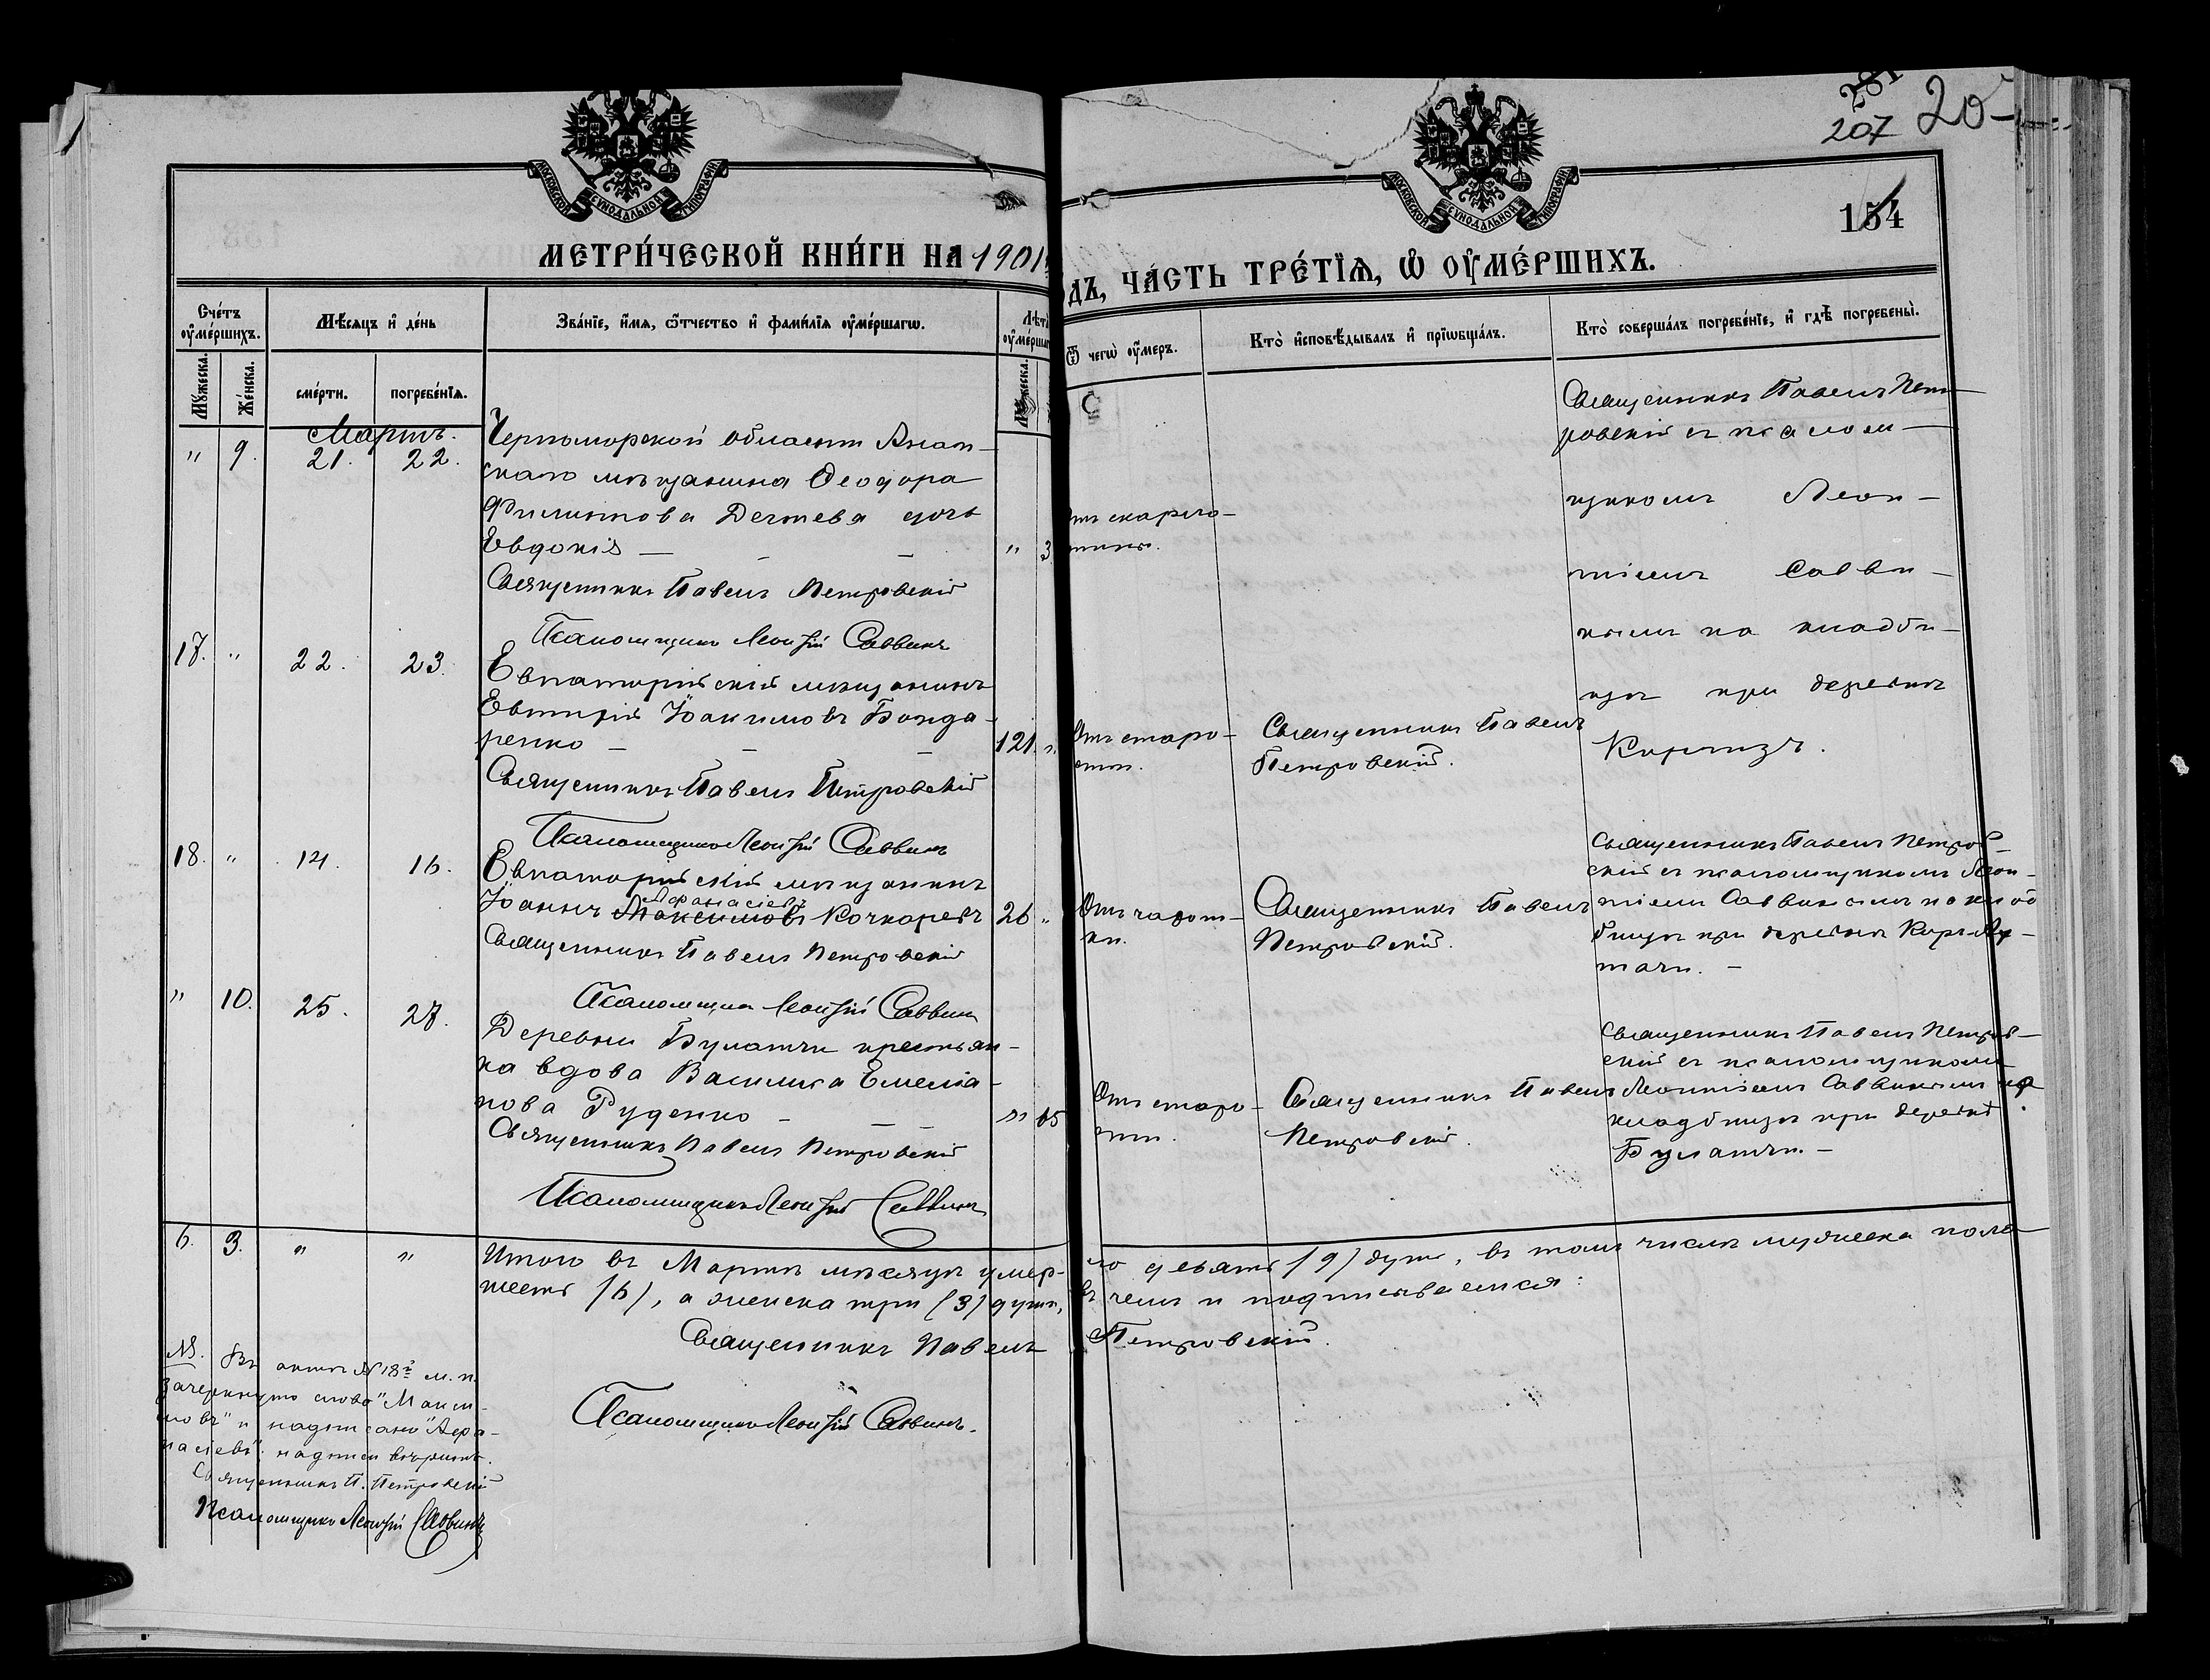 207 20
154
МОСКОВСКОЙ СѴНОДАЛЬНОЙ ТИПОГРАФІИ
МОСКОВСКОЙ СѴНОДАЛЬНОЙ ТИПОГРАФІИ
МЕТРИ́ЧЕСКОЙ КНИ́ГИ НА 1901
ДЪ, ЧА́СТЬ ТРЕ́ТІѦ, Ѡ҆ ОУ҆МЕ́РШИХЪ.
Сче́тъ оу҆ме́ршихъ.
Мꙋ́жеска.
Же́нска.
Мѣ́сяцъ и҆ де́нь
сме́рти.
погребе́нїѧ.
Зва́нїе, и҆́мѧ, ѻ҆́тчество и҆ фами́лїѧ оу҆ме́ршагѡ.
Лѣт
оу҆ме́ршаг
Мꙋ́жеска.
Ѿ чегѡ̀ оу҆́меръ.
Кто̀ и҆сповѣ́дывалъ и҆ прїѡбща́лъ.
Кто̀ соверша́лъ погребе́нїе, и҆ гдѣ̀ погребены̀.
Мартъ.
" 9. 21. 22.
Черноморской области Анап-
скаго мѣщанина Ѳеодора
Филиппова Дегтева дочь
Евдокія —
" 3
Священникъ Павелъ Петровскій
Псаломщикъ Леонтій Саввинъ
отъ скарла-
тины.
Священникъ Павелъ Пет-
ровскій съ псалом-
щикомъ Леон-
тіемъ Савви-
нымъ на кладби-
щѣ при деревнѣ
Киргизъ.
17. " 22. 23.
Евпаторійскій мѣщанинъ
Евтихій Іоакимовъ Бонда-
ренко —
121. "
Священникъ Павелъ Петровскій
Псаломщикъ Леонтій Саввинъ
Отъ старо-
сти.
Священникъ Павелъ
Петровскій.
18. " 14. 16.
Евпаторійскій мѣщанинъ
Аѳанасіевъ
Іоаннъ Максимовъ Кочкаревъ
26 "
Священникъ Павелъ Петровскій
Псаломщикъ Леонтій Саввинъ
Отъ чахот-
ки.
Священникъ Павелъ
Петровскій.
Священникъ Павелъ Петров-
скій съ псаломщикомъ Леон-
тіемъ Саввинымъ на клад-
бищѣ при деревнѣ
тачи. —
" 10. 25. 27.
Деревни Булатчи крестьян-
ка вдова Василиса Емелiа-
нова Руденко —
" 65
Священникъ Павелъ Петровскій
Псаломщикъ Леонтій Саввинъ
Отъ старо-
сти.
Священникъ Павелъ
Петровскій.
Священникъ Павелъ Петров-
скій съ псаломщикомъ
Леонтіемъ Саввинымъ на
кладбищѣ при деревнѣ
Булатчи. —
6. 3. " "
Итого въ Мартѣ мѣсяцѣ умер-
ло девять /9/ душъ, въ томъ числѣ мужеска пола
шесть /6/, а женска три (3) души,
въ чемъ и подписываемся:
Священникъ Павелъ Петровскій.
Псаломщикъ Леонтій Саввинъ.
NB. Въ актѣ №18й м. п.
зачеркнуто слово "Макси-
мовъ" и надписано "Аѳа-
насіевъ". надписи вѣрить.
Священникъ П. Петровскій
Псаломщикъ Леонтій Саввинъ